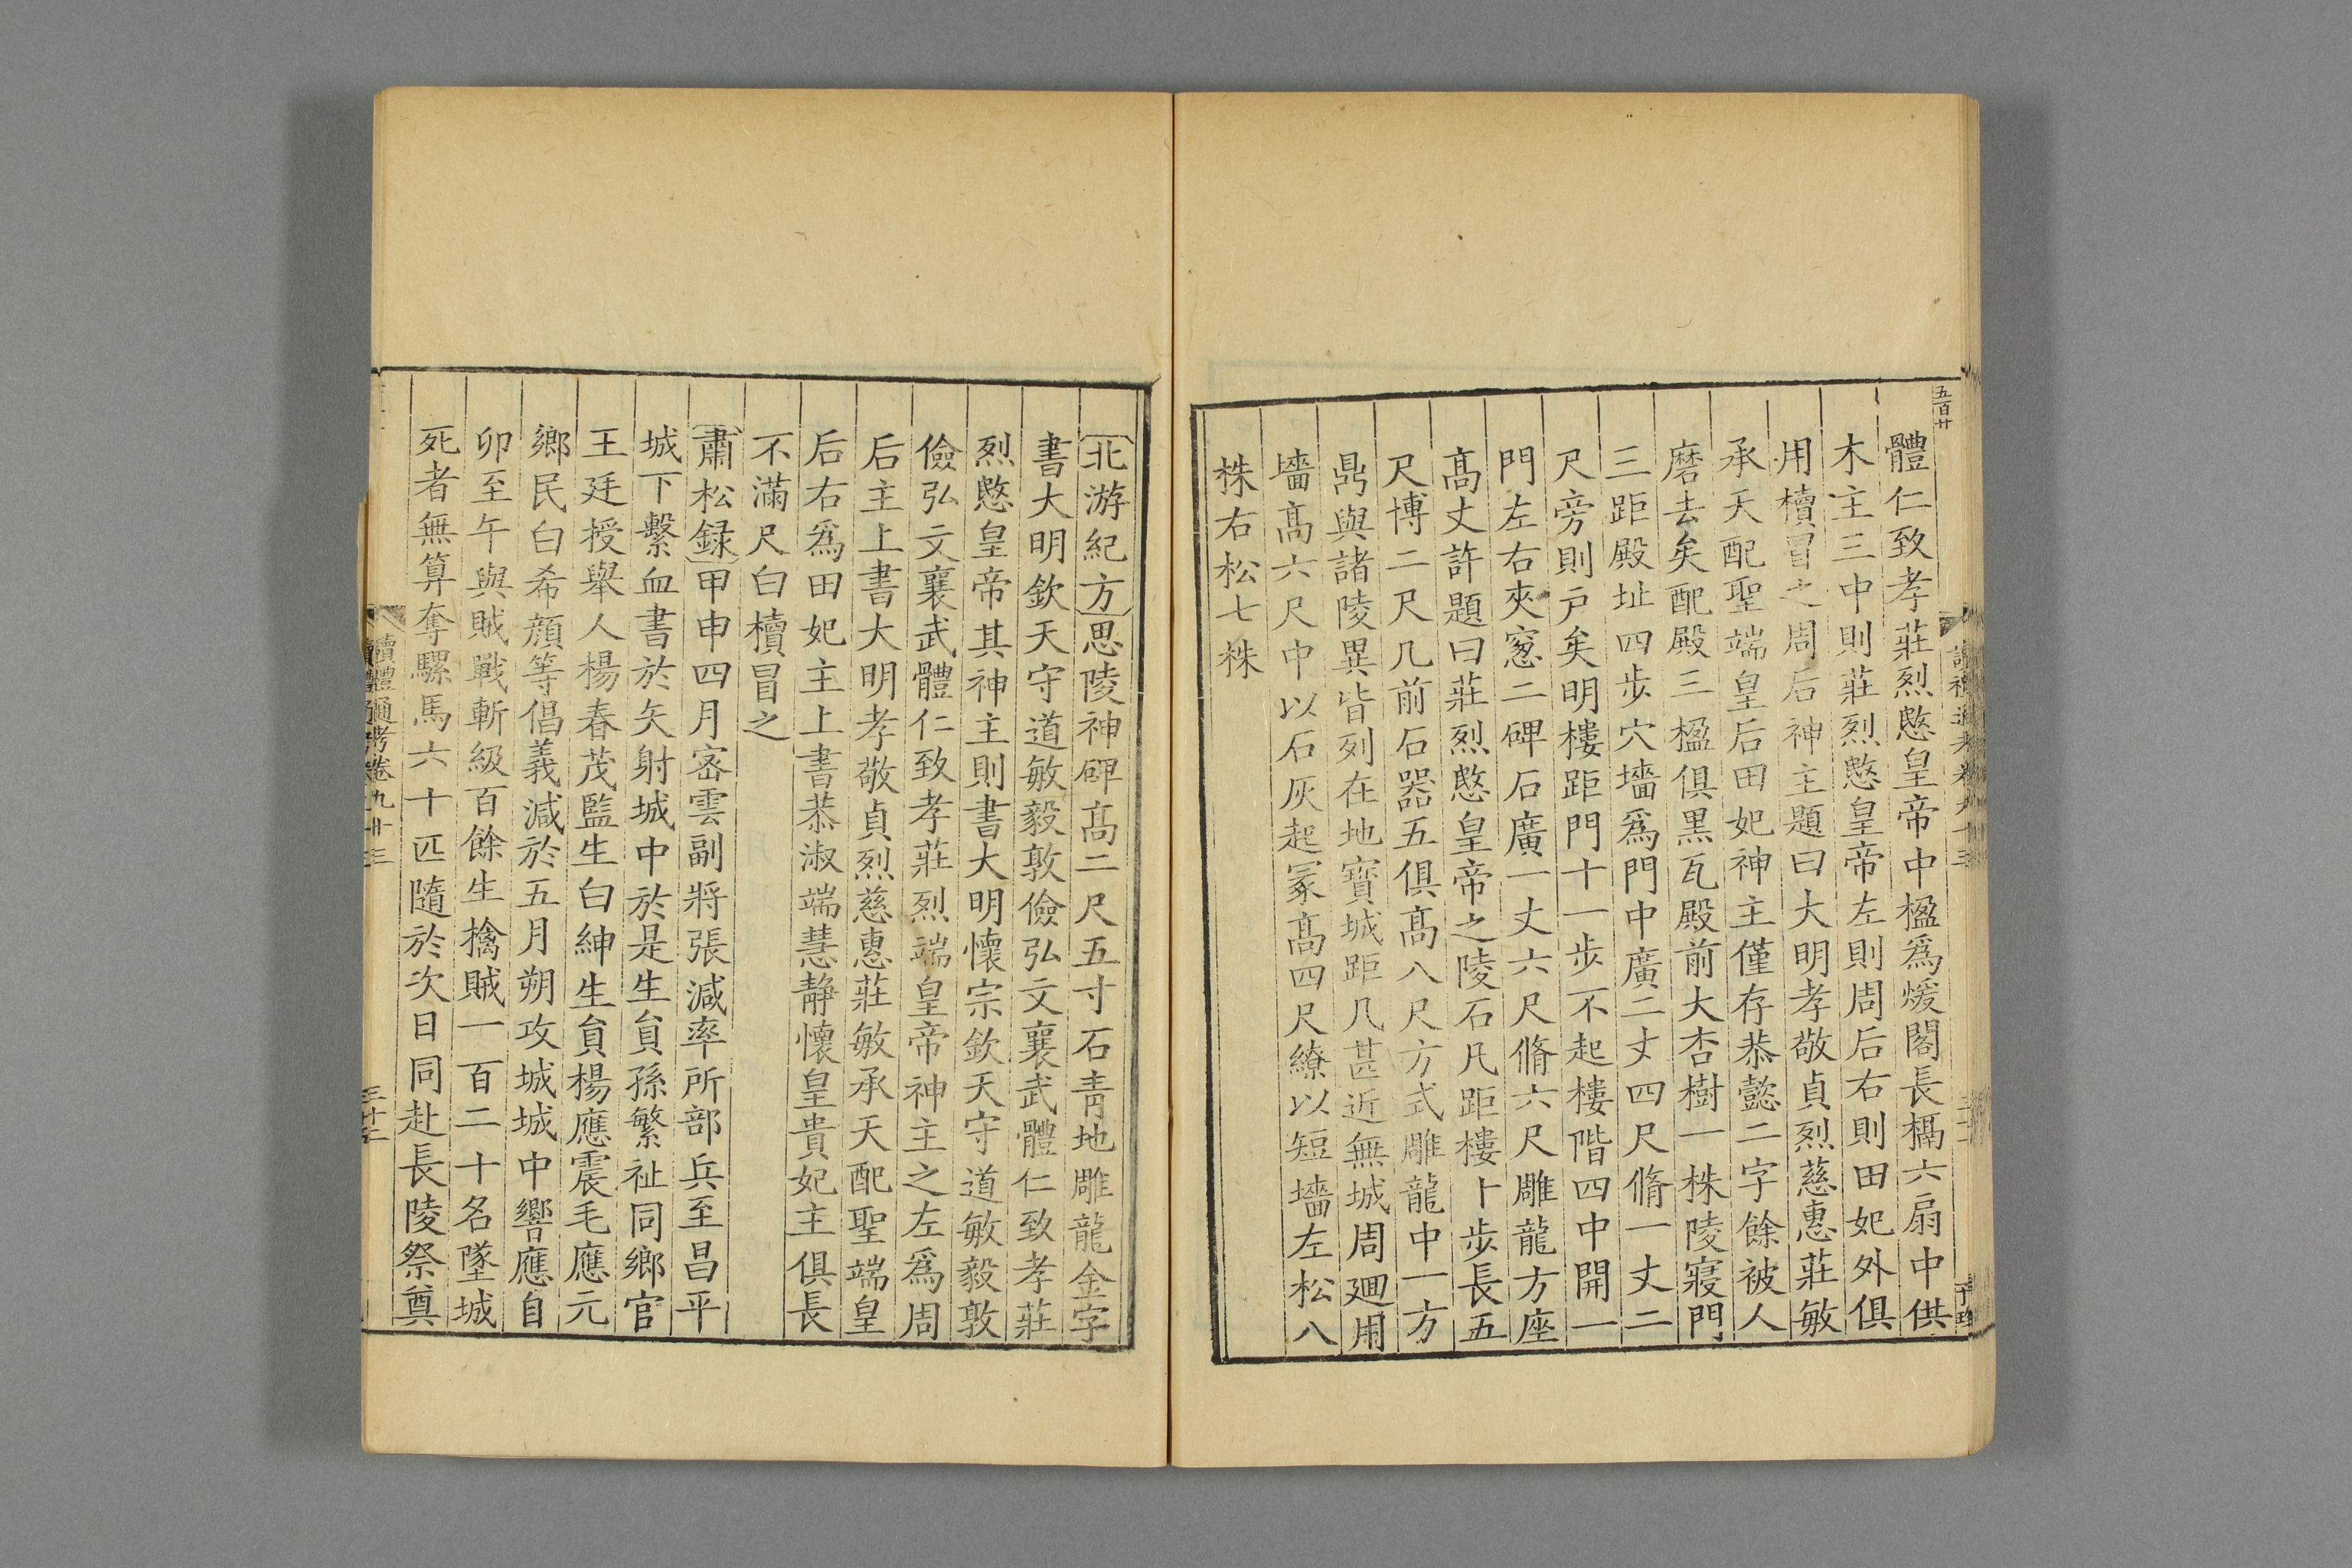 體仁致孝莊烈愍皇帝中楹爲煖閣長槅六扇中供
木主三中則莊烈愍皇帝左則周后右則田妃外俱
用櫝冒之周后神主題曰大明孝敬貞烈慈惠莊敏
承天配聖端皇后田妃神主僅存恭懿二字餘被人
磨去矣配殿三楹俱黑瓦殿前大杏樹一株陵寢門
三距殿址四步穴墻爲門中廣二丈四尺脩一丈二
尺旁則戶矣明樓距門十一步不起樓階四中開一
門左右夾窻二碑石廣一丈六尺脩六尺雕龍方座
髙丈許題曰莊烈愍皇帝之陵石凡距樓十步長五
尺博二尺几前石器五俱髙八尺方式雕龍中一方
鼎與諸陵異皆列在地寶城距几甚近無城周迴用
墻髙六尺中以石灰起冢髙四尺繚以短墻左松八
株右松七株
北游紀方思陵神碑髙二尺五寸石靑地雕龍金字
書大明欽天守道敏毅敦儉弘文襄武體仁致孝莊
烈愍皇帝其神主則書大明懷宗欽天守道敏毅敦
儉弘文襄武體仁致孝莊烈端皇帝神主之左爲周
后主上書大明孝敬貞烈慈惠莊敏承天配聖端皇
后右爲田妃主上書恭淑端慧静懷皇貴妃主俱長
不滿尺白櫝冒之
肅松録甲申四月宻雲副將張減率所部兵至昌平
城下繫血書於矢射城中於是生貟孫繁祉同鄉官
王廷授舉人楊春茂監生白紳生貟楊應震毛應元
鄉民白希顔等倡義減於五月朔攻城城中響應自
卯至午與賊戰斬級百餘生擒賊一百二十名墜城
死者無算奪騾馬六十匹隨於次日同赴長陵祭奠
讀禮通考卷九十三
五百廿